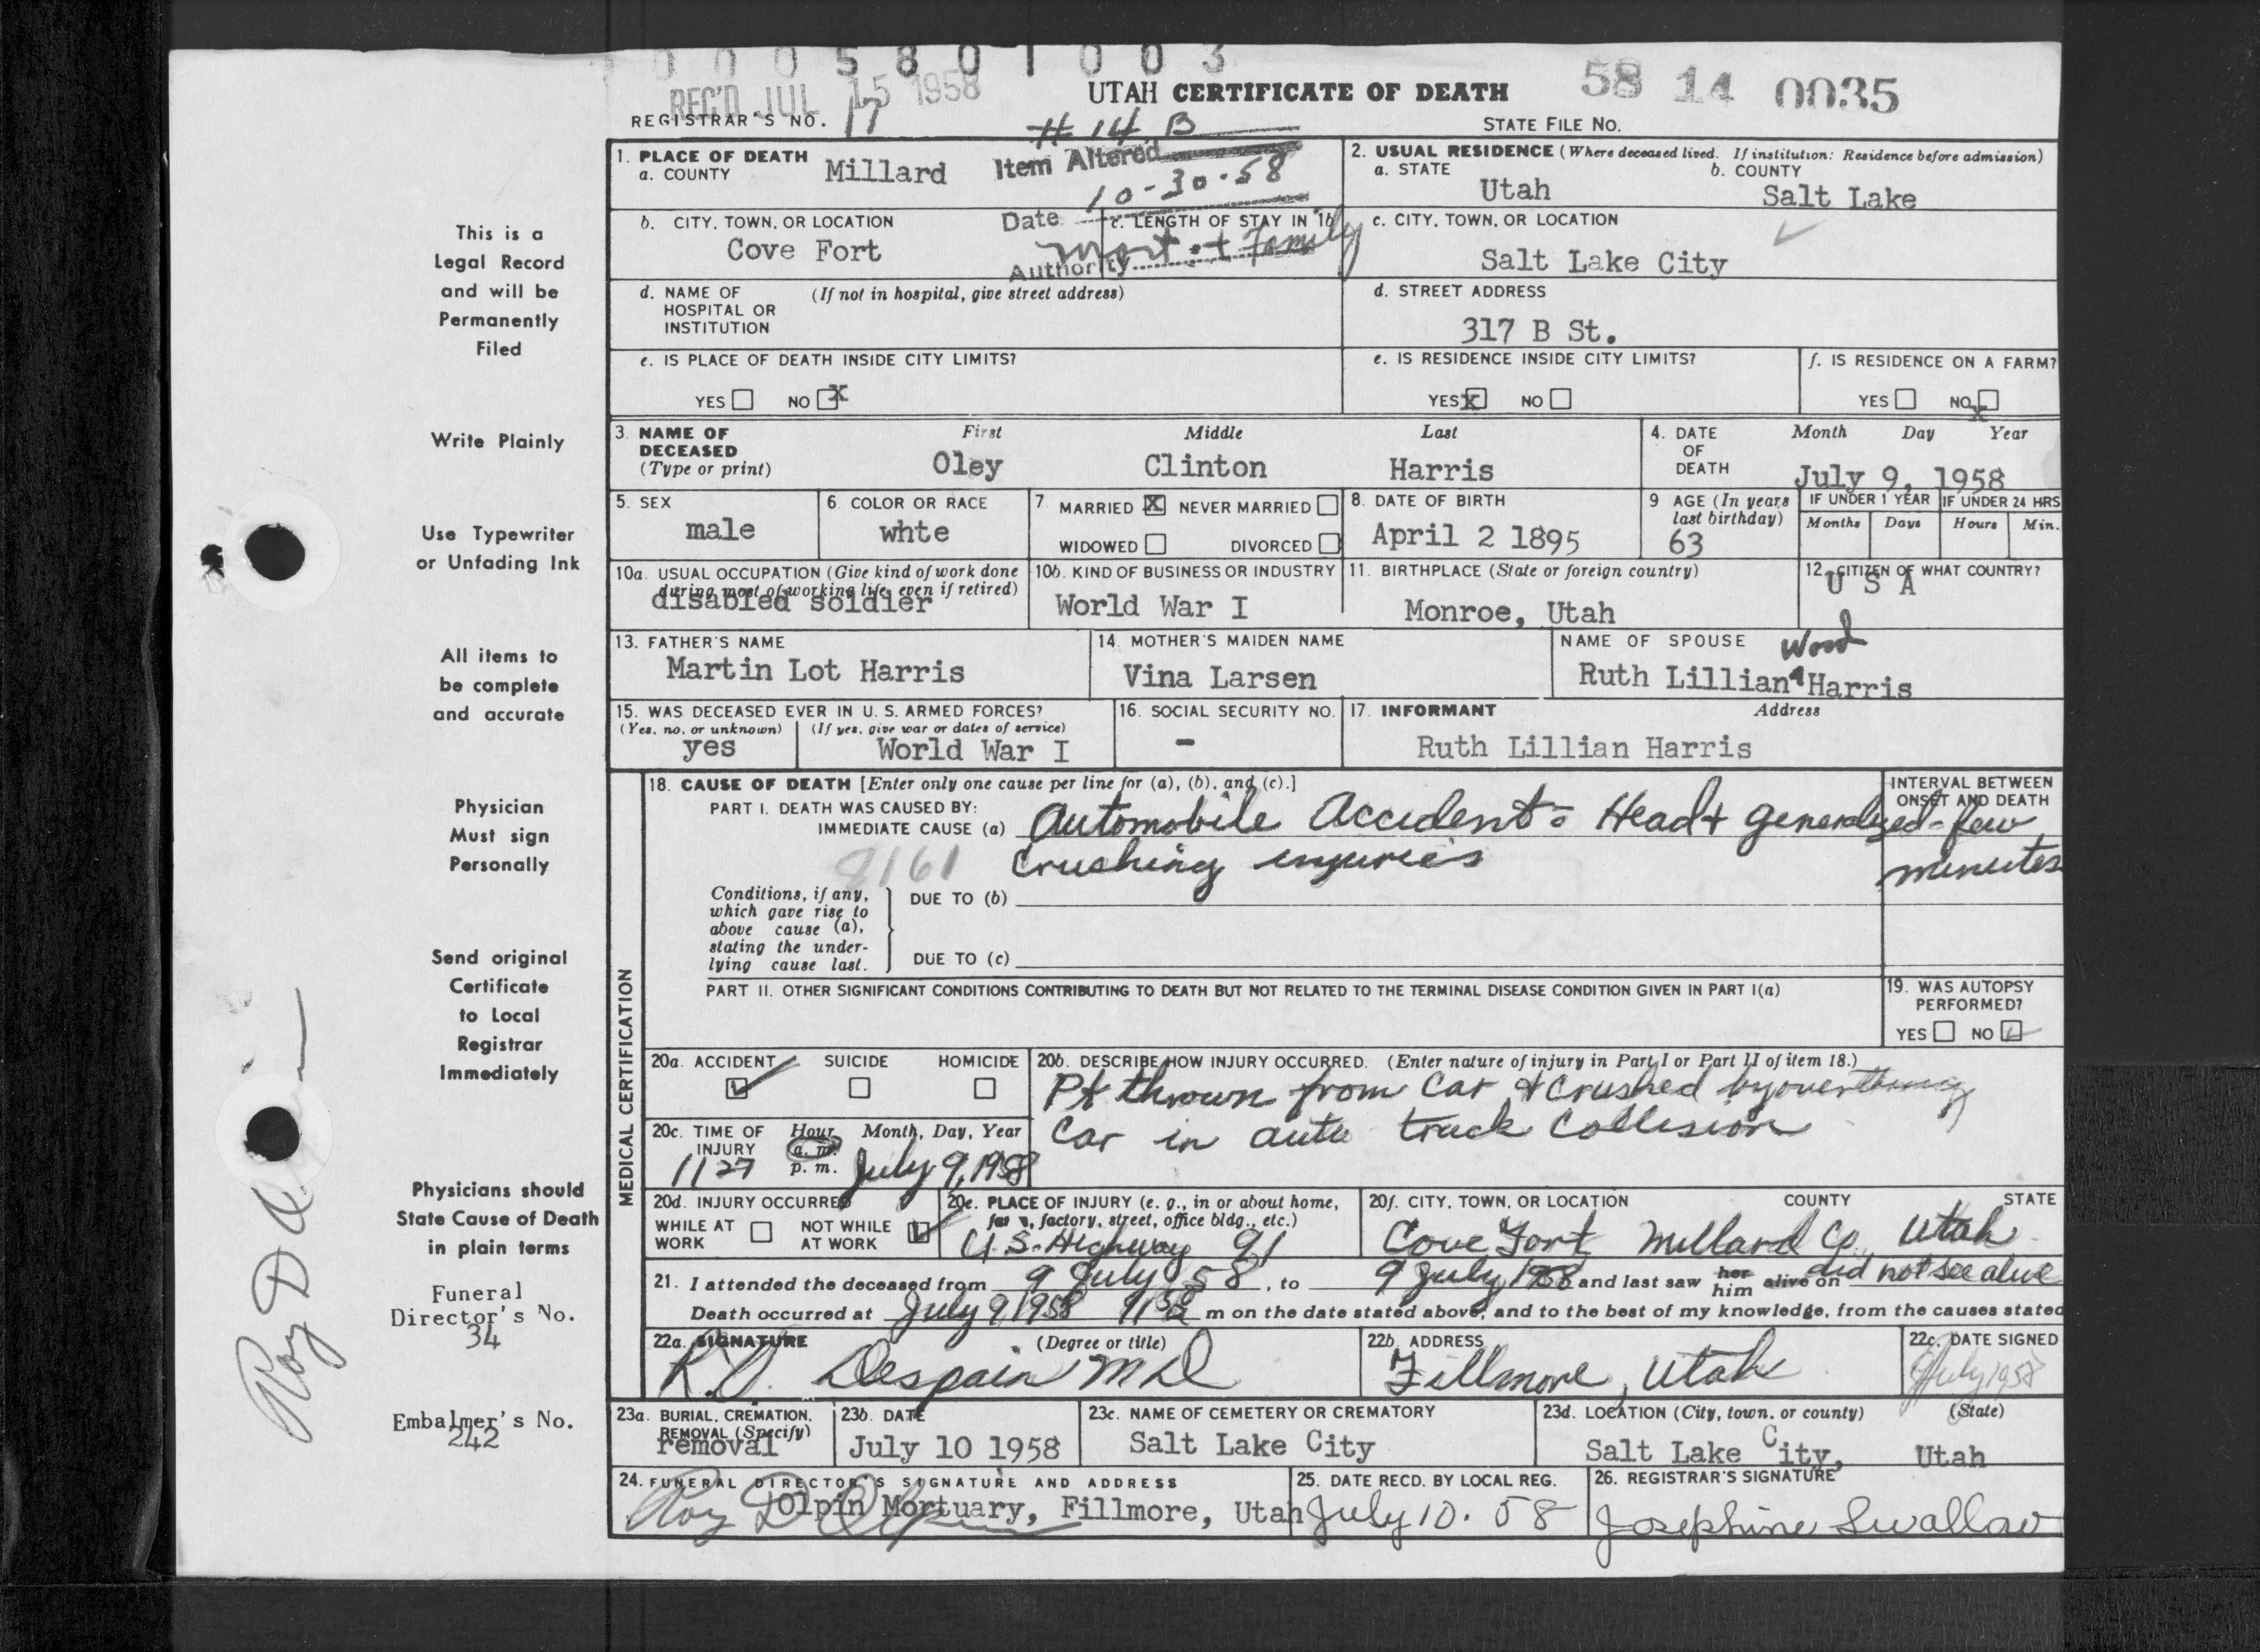 0 0 0 5 8 0 1 0 0 3
REC'D JUL 15 1958
UTAH CERTIFICATE OF DEATH
58 14 0035
REGISTRAR'S NO. 17
STATE FILE NO.
# 14 B
Item Altered
10-30-58
Date
Mort + Family
Authority
1. PLACE OF DEATH
a. COUNTY Millard
2. USUAL RESIDENCE (Where deceased lived. If institution: Residence before admission)
a. STATE Utah b. COUNTY Salt Lake
b. CITY, TOWN, OR LOCATION
Cove Fort
c. LENGTH OF STAY IN 1b
c. CITY, TOWN, OR LOCATION
Salt Lake City
d. NAME OF HOSPITAL OR INSTITUTION (If not in hospital, give street address)
d. STREET ADDRESS
317 B St.
e. IS PLACE OF DEATH INSIDE CITY LIMITS?
YES NO X
e. IS RESIDENCE INSIDE CITY LIMITS?
YES X NO
f. IS RESIDENCE ON A FARM?
YES NO X
3. NAME OF DECEASED (Type or print)
First Middle Last
Oley Clinton Harris
4. DATE OF DEATH Month Day Year
July 9, 1958
5. SEX
male
6. COLOR OR RACE
whte
7. MARRIED X NEVER MARRIED
WIDOWED DIVORCED
8. DATE OF BIRTH
April 2 1895
9 AGE (In years last birthday)
63
IF UNDER 1 YEAR IF UNDER 24 HRS
Months Days Hours Min.
10a. USUAL OCCUPATION (Give kind of work done during most of working life, even if retired)
disabled soldier
10b. KIND OF BUSINESS OR INDUSTRY
World War I
11. BIRTHPLACE (State or foreign country)
Monroe, Utah
12. CITIZEN OF WHAT COUNTRY?
U S A
13. FATHER'S NAME
Martin Lot Harris
14. MOTHER'S MAIDEN NAME
Vina Larsen
NAME OF SPOUSE
Wood
Ruth Lillian Harris
15. WAS DECEASED EVER IN U. S. ARMED FORCES?
(Yes, no, or unknown) (If yes, give war or dates of service)
yes World War I
16. SOCIAL SECURITY NO.
-
17. INFORMANT Address
Ruth Lillian Harris
MEDICAL CERTIFICATION
18. CAUSE OF DEATH [Enter only one cause per line for (a), (b), and (c).]
INTERVAL BETWEEN ONSET AND DEATH
PART I. DEATH WAS CAUSED BY:
IMMEDIATE CAUSE (a) Automobile Accident - Head + generalized - few
8161 crushing injuries minutes
Conditions, if any, which gave rise to above cause (a), stating the underlying cause last.
DUE TO (b)
DUE TO (c)
PART II. OTHER SIGNIFICANT CONDITIONS CONTRIBUTING TO DEATH BUT NOT RELATED TO THE TERMINAL DISEASE CONDITION GIVEN IN PART I(a)
19. WAS AUTOPSY PERFORMED?
YES NO
20a. ACCIDENT SUICIDE HOMICIDE
20b. DESCRIBE HOW INJURY OCCURRED. (Enter nature of injury in Part I or Part II of item 18.)
Pt thrown from car & crushed by overturning
car in auto truck collision
20c. TIME OF INJURY Hour a. m. p. m. Month, Day, Year
1127 July 9, 1958
20d. INJURY OCCURRED
WHILE AT WORK NOT WHILE AT WORK
20e. PLACE OF INJURY (e. g., in or about home, farm, factory, street, office bldg., etc.)
U.S. Highway 91
20f. CITY, TOWN, OR LOCATION COUNTY STATE
Cove Fort Millard Co, Utah
21. I attended the deceased from 9 July 58, to 9 July 1958 and last saw her him alive on did not see alive
Death occurred at July 9, 1958 1132 m on the date stated above; and to the best of my knowledge, from the causes stated
22a. SIGNATURE (Degree or title)
R.D. Despain MD
22b. ADDRESS
Fillmore, Utah
22c. DATE SIGNED
9 July 1958
23a. BURIAL, CREMATION, REMOVAL (Specify)
removal
23b. DATE
July 10 1958
23c. NAME OF CEMETERY OR CREMATORY
Salt Lake City
23d. LOCATION (City, town, or county) (State)
Salt Lake City, Utah
24. FUNERAL DIRECTOR'S SIGNATURE AND ADDRESS
Roy D Olpin
Olpin Mortuary, Fillmore, Utah
25. DATE RECD. BY LOCAL REG.
July 10. 58
26. REGISTRAR'S SIGNATURE
Josephine Swallow
This is a
Legal Record
and will be
Permanently
Filed
Write Plainly
Use Typewriter
or Unfading Ink
All items to
be complete
and accurate
Physician
Must sign
Personally
Send original
Certificate
to Local
Registrar
Immediately
Physicians should
State Cause of Death
in plain terms
Funeral
Director's No.
34
Embalmer's No.
242
Roy D Olpin